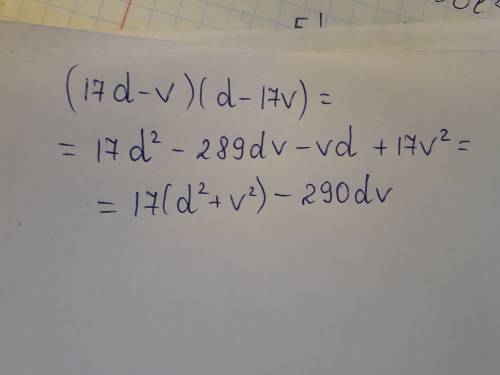 (17d-v)(d-17v)=
=17d²-289dv-vd+17v²=
=17(d²+v²)-290dv